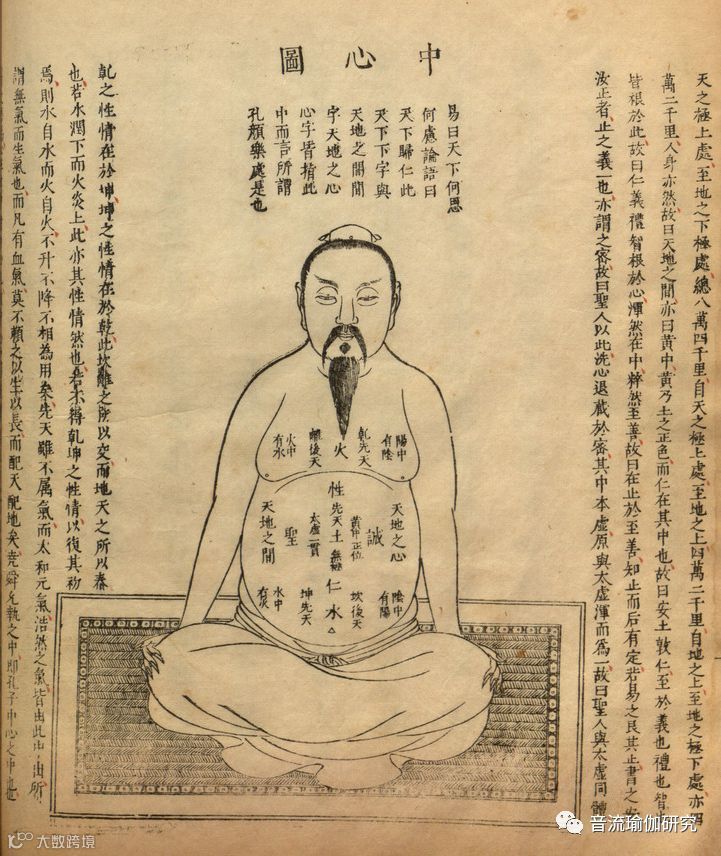 中心圖
天之極上處至地之下極處總八萬四千里自天之極上處至地之上四萬二千里自地之上至地之極下處亦四
萬二千里人身亦然故曰天地之間亦曰黃中黃乃土之正色而仁在其中也故曰安土敦仁至於義也禮也智
皆根於此故曰仁義禮智根於心渾然在中粹然至善故曰在止於至善知止而后有定若易之艮其止書之安
汝止者止之義一也亦謂之密故曰聖人以此洗心退藏於密其中本虛原與太虛渾而爲一故曰聖人與太虛同體
易曰天下何思
何慮論語曰
天下歸仁此
天下下字與
天地之間間
字天地之心
心字皆指此
中而言所謂
孔顏樂處是也
陽中有陰
乾先天
火
離後天
火中有水
性
天地之心
誠
黃中正位
先天土
無極
太虛一貫
聖
天地之間
仁
陰中有陽
坎後天
水
坤先天
水中有火
乾之性情在於坤坤之性情在於乾此坎離之所以交而地天之所以泰
也若水潤下而火炎上此亦其性情然也若不得乾坤之性情以復其初
焉則水自水而火自火不升不降不相為用矣先天雖不屬氣而太和元氣浩然之氣皆由此中出所
謂無氣而生氣也而凡有血氣莫不賴之以生以長而配天配地矣堯舜允執之中即孔子中心之中也
音流瑜伽研究
大数跨境